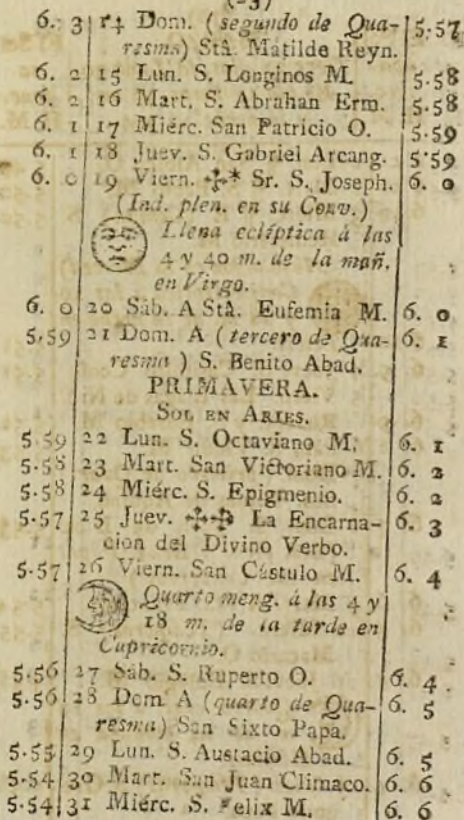 6. 3 14 Dom. (segundo de Qua- 5.57
resma) Stâ. Matilde Reyn.
6. 2 15 Lun. S. Longinos M. 5.58
6. 2 16 Mart. S. Abrahan Erm. 5.58
6. 1 17 Miérc. San Patricio O. 5.59
6. 1 18 Juev. S. Gabriel Arcang. 5.59
6. 0 19 Viern. ✢* Sr. S. Joseph. 6. 0
(Ind. plen. en su Conv.)
Llena eclíptica á las
4 y 40 m. de la mañ.
en Virgo.
6. 0 20 Sáb. A Stâ. Eufemia M. 6. 0
5.59 21 Dom. A (tercero de Qua- 6. 1
resma) S. Benito Abad.
PRIMAVERA.
SOL EN ARIES.
5.59 22 Lun. S. Octaviano M. 6. 1
5.58 23 Mart. San Victoriano M. 6. 2
5.58 24 Miérc. S. Epigmenio. 6. 2
5.57 25 Juev. ✢✢ La Encarna- 6. 3
cion del Divino Verbo.
5.57 26 Viern. San Cástulo M. 6. 4
Quarto meng. á las 4 y
18 m. de la tarde en
Capricornio.
5.56 27 Sáb. S. Ruperto O. 6. 4
5.56 28 Dom. A (quarto de Qua- 6. 5
resma) San Sixto Papa.
5.55 29 Lun. S. Austacio Abad. 6. 5
5.54 30 Mart. San Juan Climaco. 6. 6
5.54 31 Miérc. S. Felix M. 6. 6